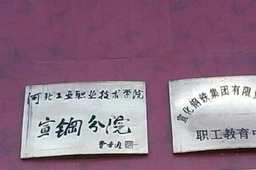 河北工业职业技术学院
宣钢分院
宣化钢铁集团有限
职工教育